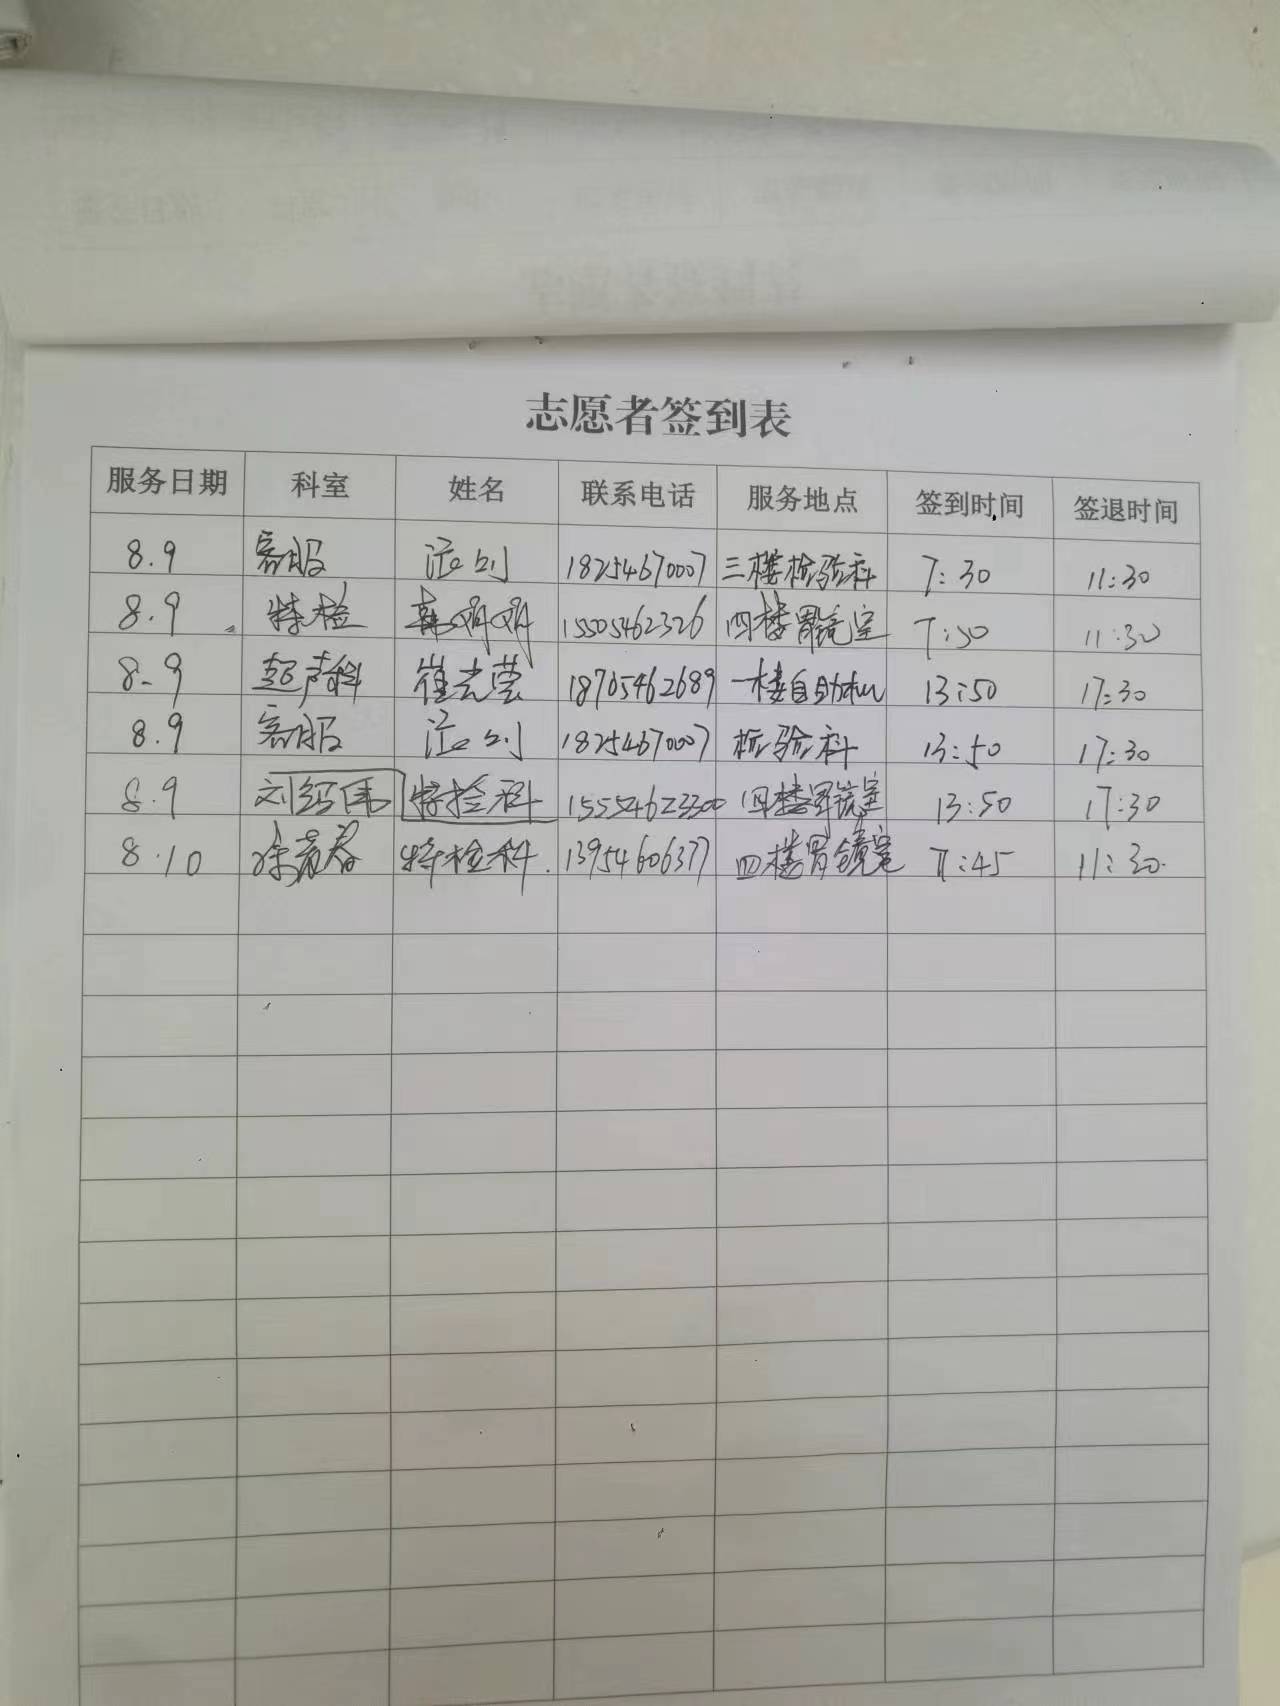 志愿者签到表
服务日期 科室 姓名 联系电话 服务地点 签到时间 签退时间
8.9 客服 18254670007 三楼检验科 7:30 11:30
8.9 特检 韩明明 15505462326 四楼胃镜室 7:50 11:30
8-9 超声科 崔光莹 18705462689 一楼自助机 13:50 17:30
8.9 客服 18254670007 检验科 13:50 17:30
8.9 刘绍伟 特检科 四楼胃镜室 13:50 17:30
8.10 特检科. 13954606377 四楼胃镜室 7:45 11:30.